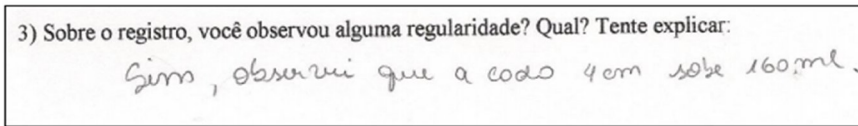 3) Sobre o registro, você observou alguma regularidade? Qual? Tente explicar:
Sim, observei que a cada 4 cm sobe 160 ml.